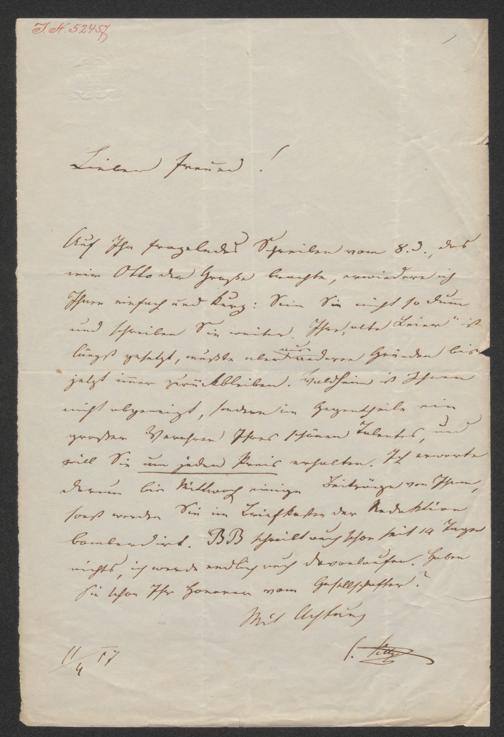 I.N. 52457
Lieber Freund!
Auf Ihr Schreiben vom 8. d., das
mir Otto der Große brachte, erwiedere ich
Ihnen einfach und kurz: Sein Sie nicht so dum
und schreiben Sie weiter. Ihre „alte Leier" ist
längst gesetzt, mußte aber aus anderen Gründen bis
jetzt immer zurückbleiben. Waldheim ist Ihnen
nicht abgeneigt, sondern im Gegentheile ein
großer Verehrer Ihres schönen Talentes, und
will Sie um jeden Preis erhalten. Ich erwarte
darum bis Mittwoch einige Beiträge von Ihnen,
sonst werden Sie im Briefkasten der Redaktion
bombardirt. BB schreibt auch schon seit 14 Tagen
nichts, ich werde endlich auch davonlaufen. Haben
Sie schon Ihr Honorar vom Gesellschafter?
Mit Achtung
11/4 57